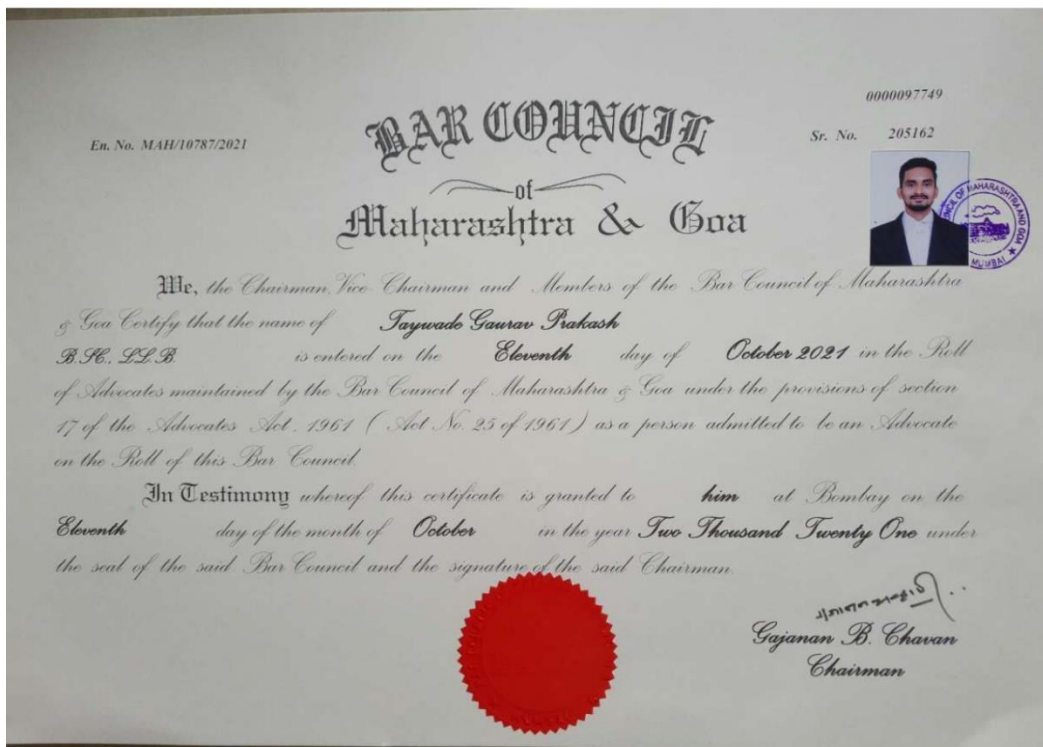 0000097749
En. No. MAH/10787/2021
Sr. No. 205162
BAR COUNCIL
of
Maharashtra & Goa
COUNCIL OF MAHARASHTRA AND GOA
MUMBAI
We, the Chairman, Vice-Chairman and Members of the Bar Council of Maharashtra
& Goa Certify that the name of Taywade Gaurav Prakash
B.SC., LL.B. is entered on the Eleventh day of October 2021 in the Roll
of Advocates maintained by the Bar Council of Maharashtra & Goa under the provisions of section
17 of the Advocates Act, 1961 ( Act No. 25 of 1961 ) as a person admitted to be an Advocate
on the Roll of this Bar Council.
In Testimony whereof this certificate is granted to him at Bombay on the
Eleventh day of the month of October in the year Two Thousand Twenty One under
the seal of the said Bar Council and the signature of the said Chairman.
Gajanan B. Chavan
Chairman